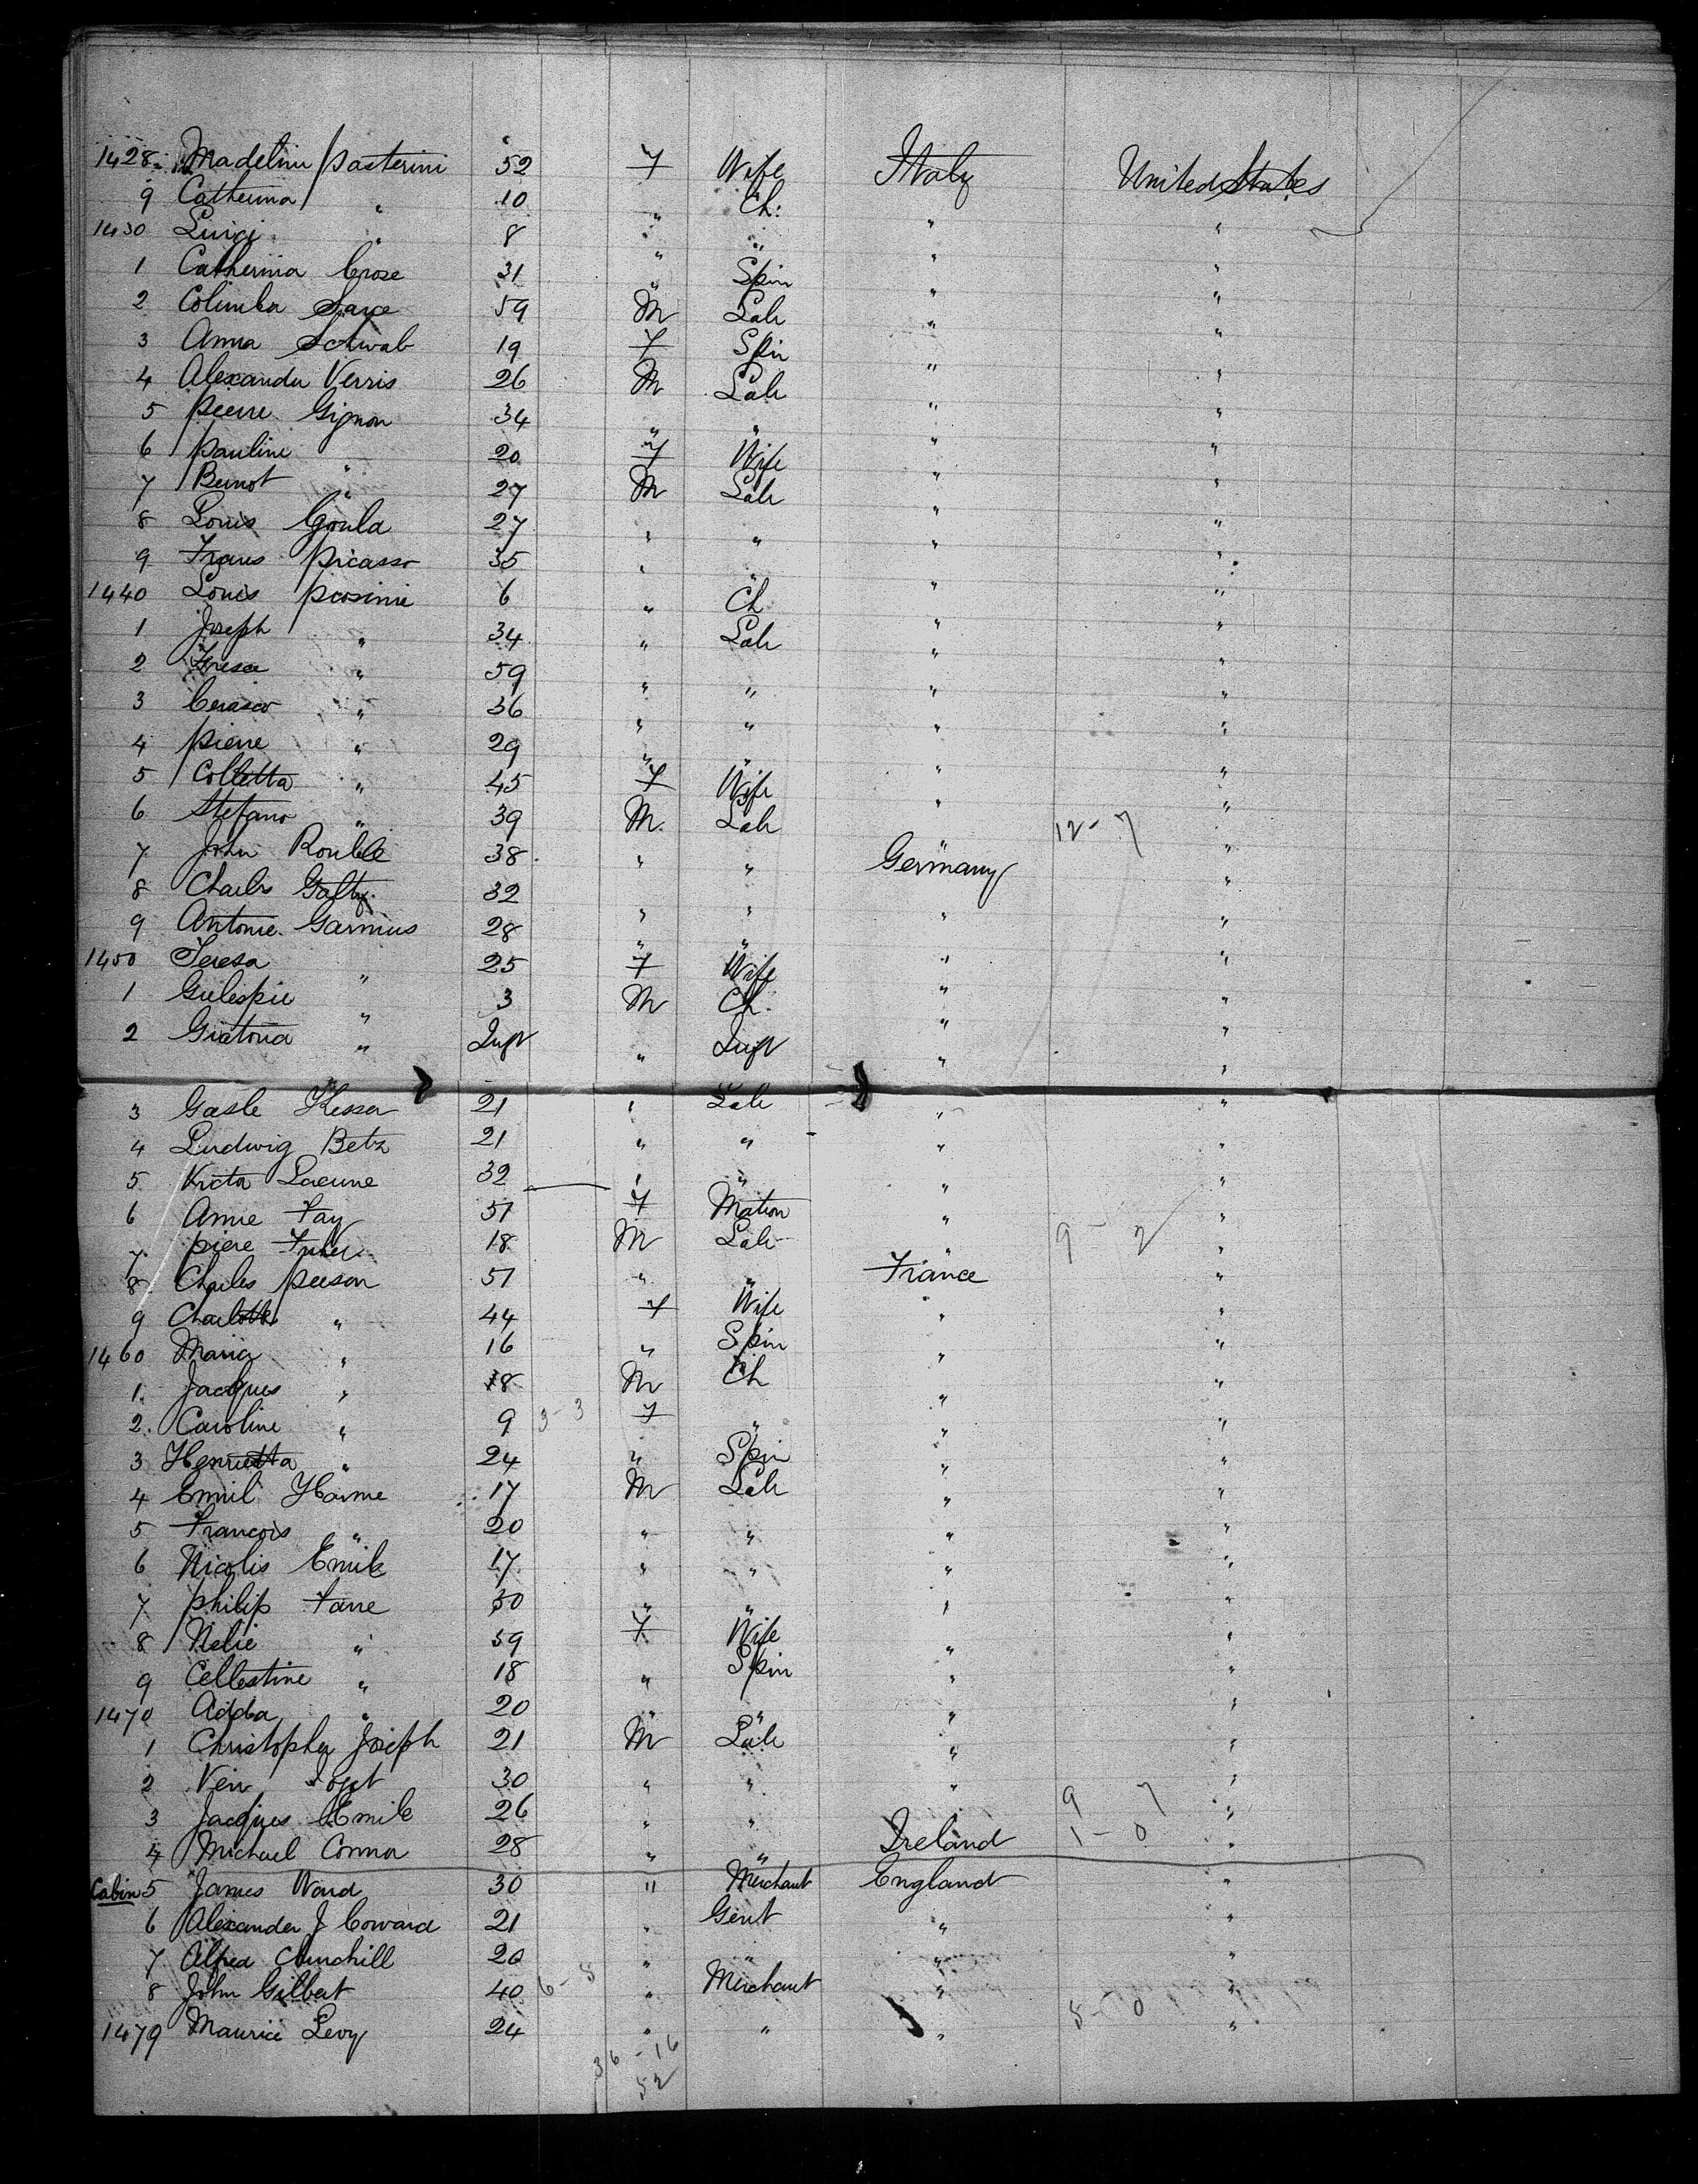 1428 Madelini Pasterini 52 F Wife Italy United States
9 Catherina " 10 " Ch: " "
1430 Luigi " 8 " " " "
1 Catherina Crose 31 " Spin " "
2 Colimba 59 M Lab " "
3 Anna Schwab 19 F Spin " "
4 Alexander Verris 26 M Lab " "
5 Pierre Gignon 34 " " " "
6 Pauline " 20 F Wife " "
7 " 27 M Lab " "
8 Louis Goula 27 " " " "
9 Picasso 35 " " " "
1440 Louis 6 " Ch " "
1 Joseph " 34 " Lab " "
2 " 59 " " " "
3 Cerasco " 36 " " " "
4 Pierre " 29 " " " "
5 Colletta " 45 F Wife " "
6 Stefano " 39 M Lab " 12-7 "
7 John Rouble 38 " " Germany "
8 Charles Galty 32 " " " "
9 Antonie Garmius 28 " " " "
1450 Teresa " 25 F Wife " "
1 Gulespie " 3 M Ch. " "
2 Giatoria " Inft " Inft " "
3 Gasle Kesser 21 " Lab " "
4 Ludwig Betz 21 " " " "
5 Victor Lacune 32 " " " "
6 Annie Fay 51 F Matron " "
7 Piere 18 M Lab " 9-2 "
8 Charles Peeson 51 " " France "
9 Charlotte " 44 F Wife " "
1460 Maria " 16 " Spin " "
1 Jacques " 18 M Ch " "
2 Caroline " 9 3-3 F " " "
3 Henrietta " 24 " Spin " "
4 Emil Harme 17 M Lab " "
5 Francois " 20 " " " "
6 Nicolis Emile 17 " " " "
7 Philip Farre 30 " " " "
8 Nelie " 39 F Wife " "
9 Cellestine " 18 " Spin " "
1470 Adda " 20 " " " "
1 Christopher Joseph 21 M Lab " "
2 30 " " " "
3 Jacques Emile 26 " " " 9 7 "
4 Michael Connor 28 " " Ireland 1-0 "
Cabin 5 James Ward 30 " Merchant England "
6 Alexander J Coward 21 " Gent " "
7 Alfred Churchill 20 " " " "
8 John Gilbert 40 6-8 " Merchant " "
1479 Maurice Levy 24 " " " 5-0 "
36-16
52